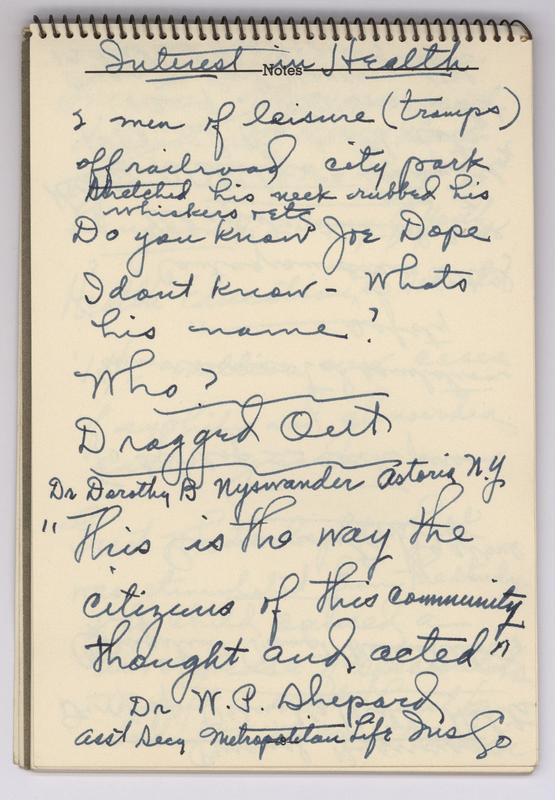 Interest in Health
Notes
2 men of leisure (tramps)
off railroad city park
Stretched his neck rubbed his
whiskers & etc
Do you know Joe Dope
I dont know - Whats
his name?
Who?
Dragged Out
Dr Dorothy B Nyswander Astoria N.Y
"This is the way the
citizens of this community
thought and acted"
Dr W. P. Shepard
Asst Secy Metropolitan Life Ins Co